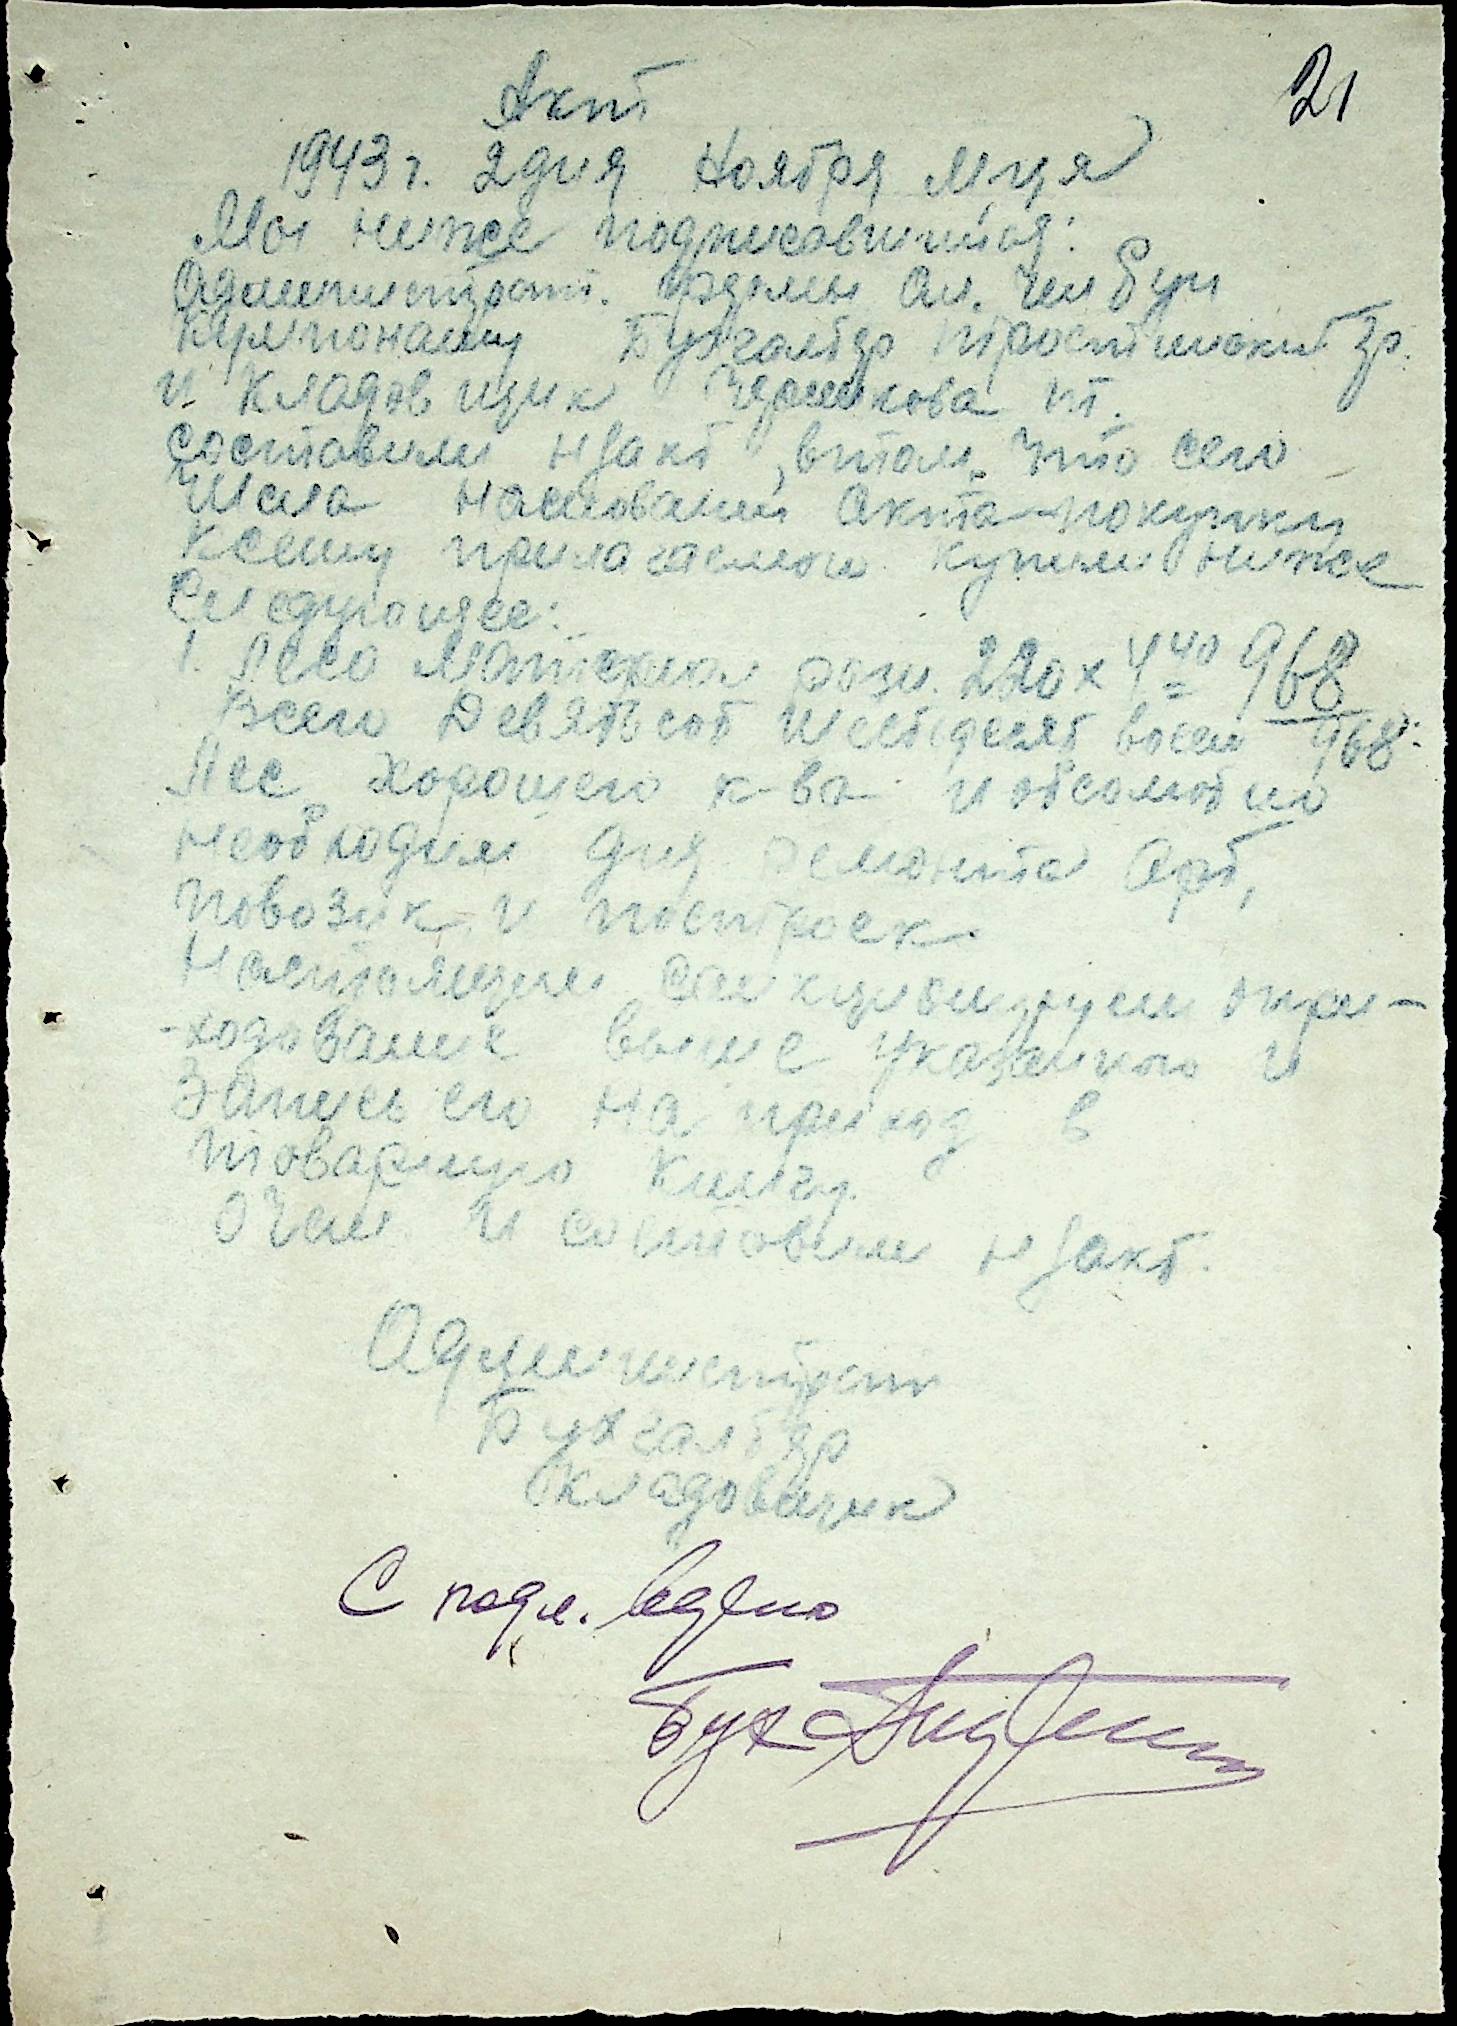 21
Акт
1943 г. 2 дня Ноября М-ця
Мы ниже подписавшися:
Администрат.
Бухгалтер
и Кладовщик
составили н/акт, втом, что сего
числа Акта покупки
Ксему прилагаемои купили ниже
следующее:
1. Лесо Материал разн. 220 х 4 40 968
Всего Девятьсот шестьдесят восем 968
Лес хорошего к-ва и обсолютно
необходим для ремонта Арб,
повозик и построек.
Настоящим санкционируем опри-
-ходование выше указанного и
запись его на приход в
товарную книгу.
О чем и составили н/акт.
Администрат
Бухгалтер
Кладовщик
С подл. верно
Бух